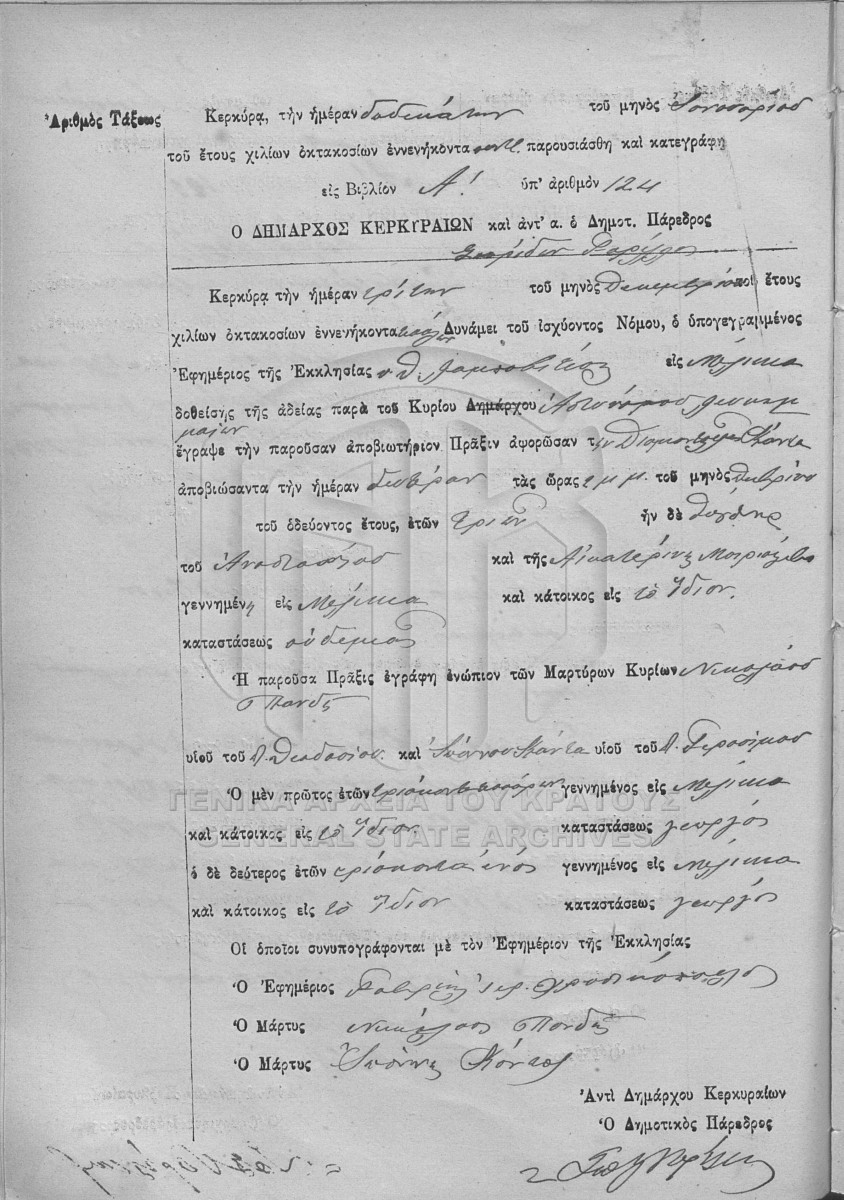 Ἀριθμὸς Τάξεως
Κερκύρᾳ, τὴν ἡμέραν δωδεκάτην τοῦ μηνὸς Ἰανουαρίου
τοῦ ἔτους χιλίων ὀκτακοσίων ἐννενήκοντα πέντε παρουσιάσθη καὶ κατεγράφη
εἰς Βιβλίον Α! ὑπ' ἀριθμὸν 124
Ο ΔΗΜΑΡΧΟΣ ΚΕΡΚΥΡΑΙΩΝ καὶ ἀντ' α. ὁ Δημοτ. Πάρεδρος
Κερκύρᾳ τὴν ἡμέραν τρίτην τοῦ μηνὸς Δεκεμβρίου τοῦ ἔτους
χιλίων ὀκτακοσίων ἐννενήκοντα Δυνάμει τοῦ ἰσχύοντος Νόμου, ὁ ὑπογεγραμμένος
Ἐφημέριος τῆς Ἐκκλησίας εἰς Μέλικια
δοθείσης τῆς ἀδείας παρὰ τοῦ Κυρίου Δημάρχου Ἀστυνόμου Λευκιμ
μαίων
ἔγραψε τὴν παροῦσαν ἀποβιωτήριον Πρᾶξιν ἀφορῶσαν τὴν Κάντα
ἀποβιώσαντα τὴν ἡμέραν δευτέραν τὰς ὥρας 2 μ.μ. τοῦ μηνὸς
τοῦ ὁδεύοντος ἔτους, ἐτῶν τριῶν ἦν δὲ θυγάτηρ
τοῦ Ἀναστασίου καὶ τῆς Αἰκατερίνης
γεννημένη εἰς Μέλικια καὶ κάτοικος εἰς τὸ Ἴδιον.
καταστάσεως οὐδεμιᾶς
Ἡ παροῦσα Πρᾶξις ἐγράφη ἐνώπιον τῶν Μαρτύρων Κυρίων Νικολάου
Πανδῆ
υἱοῦ τοῦ π. Θεοδοσίου καὶ Ἰωάννου Κάντα υἱοῦ τοῦ π. Γερασίμου
Ὁ μὲν πρῶτος ἐτῶν τριάκοντα τεσσάρων γεννημένος εἰς Μέλικια
καὶ κάτοικος εἰς τὸ Ἴδιον. καταστάσεως γεωργός
ὁ δὲ δεύτερος ἐτῶν τριάκοντα ἑνός γεννημένος εἰς Μέλικια
καὶ κάτοικος εἰς τὸ Ἴδιον καταστάσεως γεωργός
Οἱ ὁποῖοι συνυπογράφονται μὲ τὸν Ἐφημέριον τῆς Ἐκκλησίας
Ὁ Ἐφημέριος
Ὁ Μάρτυς Νικόλαος Πανδῆς
Ὁ Μάρτυς Ἰωάννης Κάντας
Ἀντὶ Δημάρχου Κερκυραίων
Ὁ Δημοτικὸς Πάρεδρος
ΓΕΝΙΚΑ ΑΡΧΕΙΑ ΤΟΥ ΚΡΑΤΟΥΣ
GENERAL STATE ARCHIVES